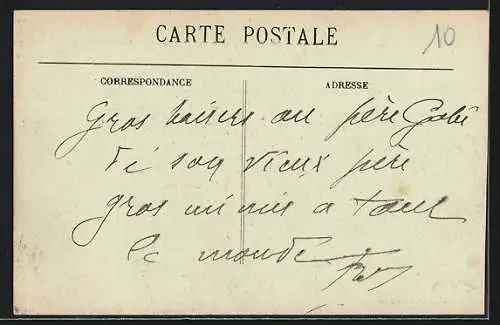 CARTE POSTALE
10
CORRESPONDANCE
ADRESSE
Gros baisers au père Gabi
di son vieux père
gros mimis a tout
le monde